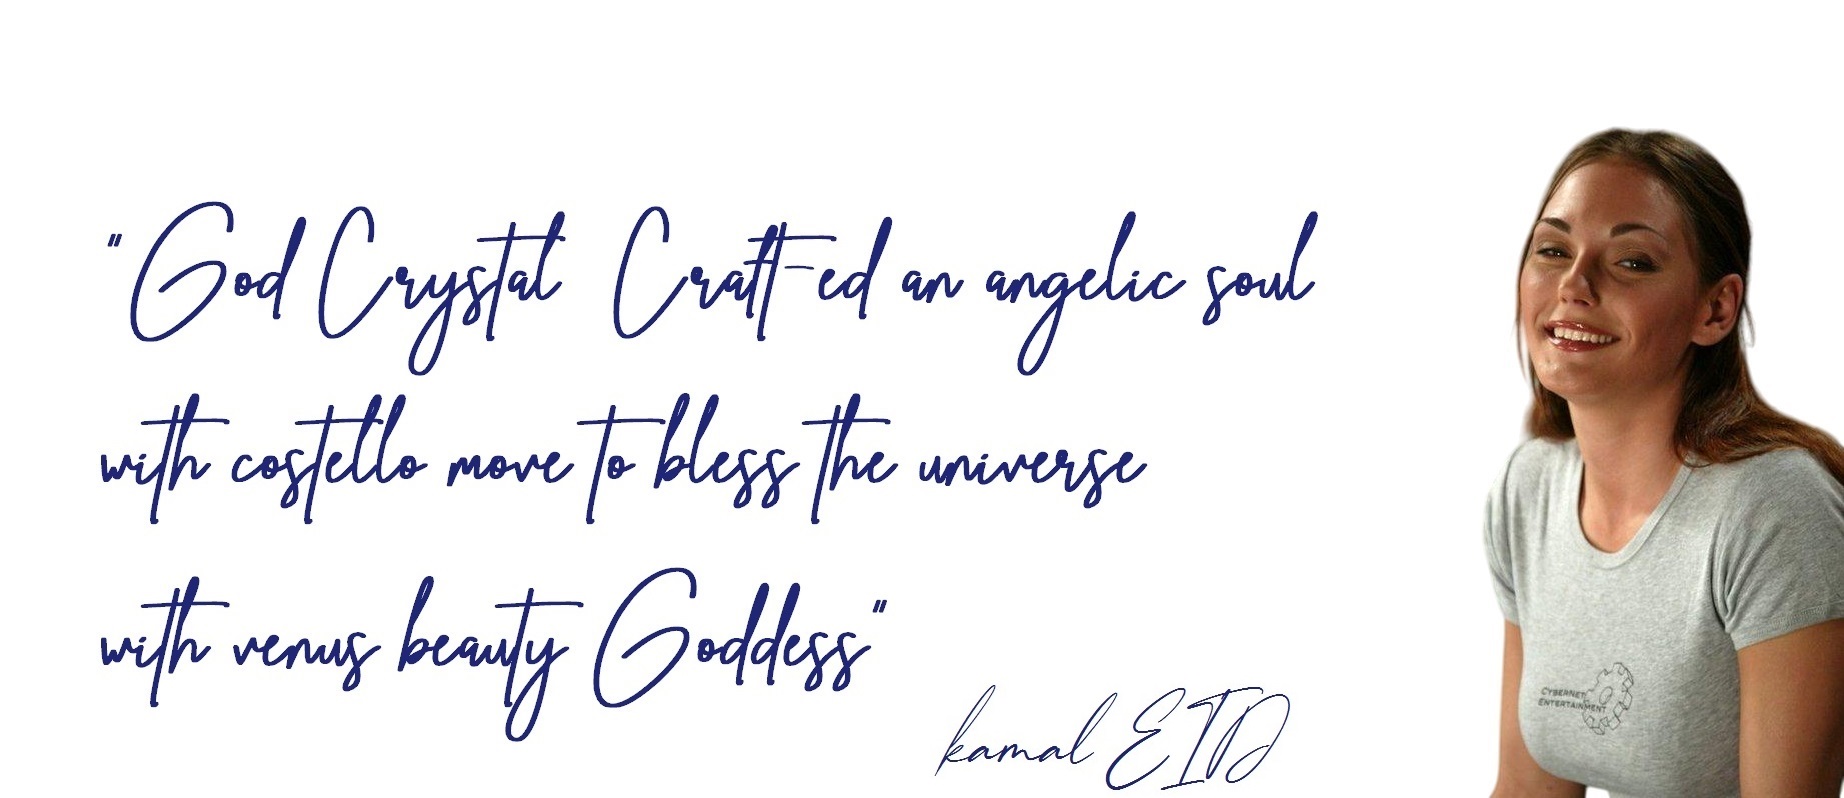 "God Crystal Craft-ed an angelic soul
with costello move to bless the universe
with venus beauty Goddess"
kamal EID
CYBERNET
ENTERTAINMENT